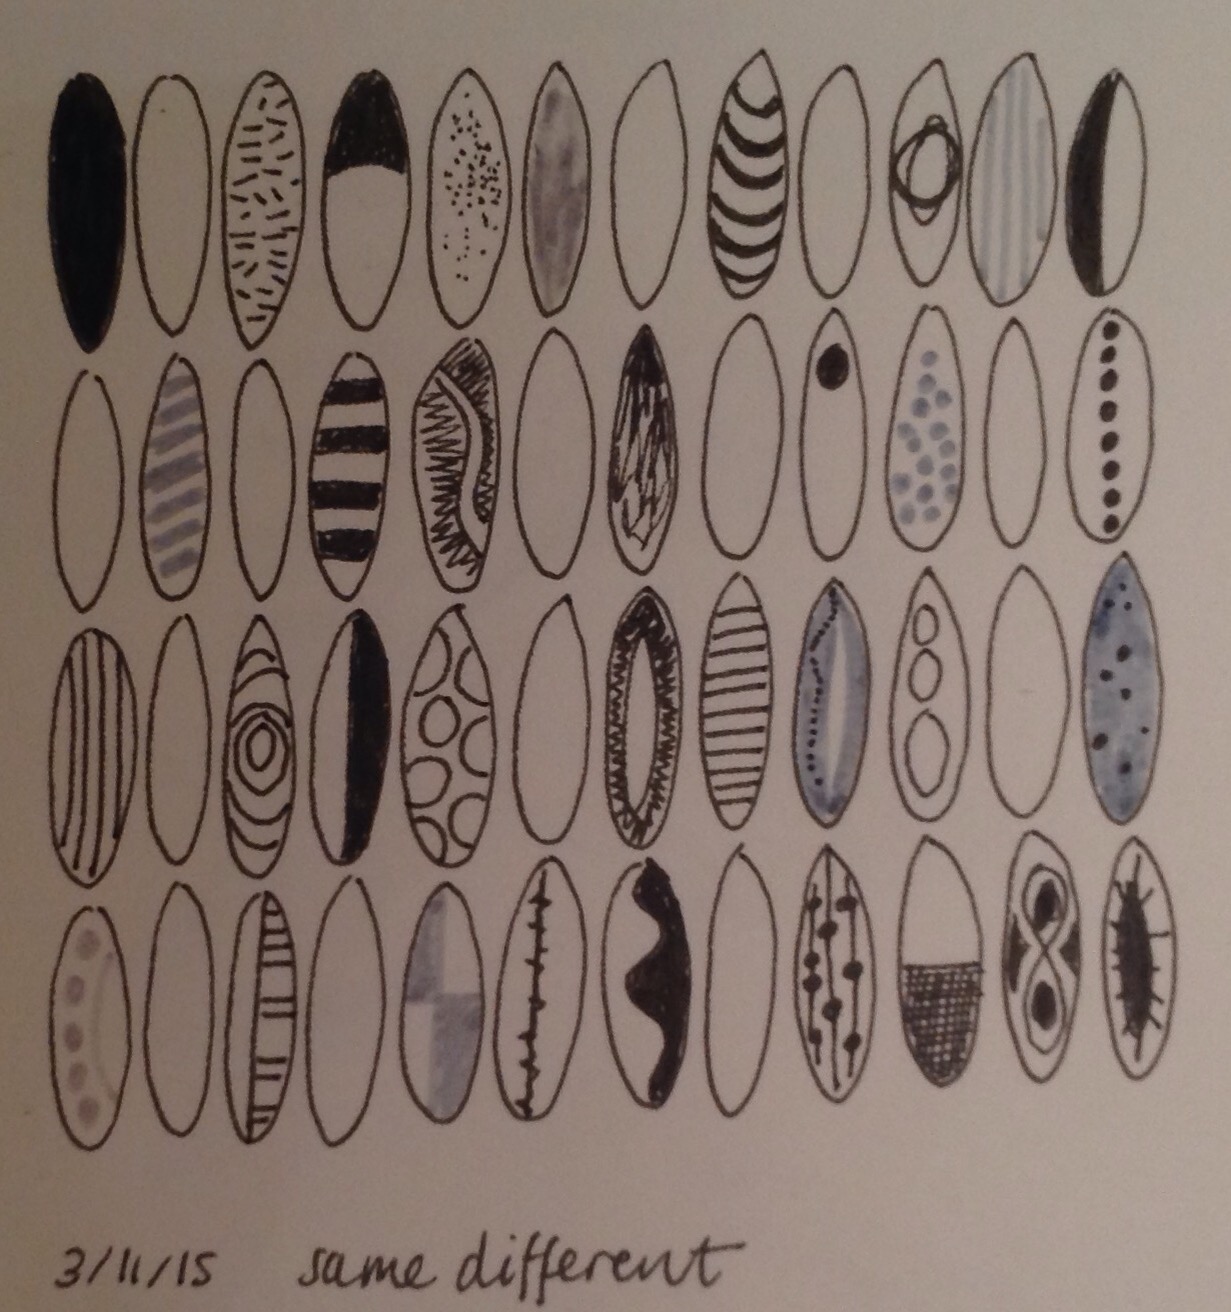 3/11/15 same different